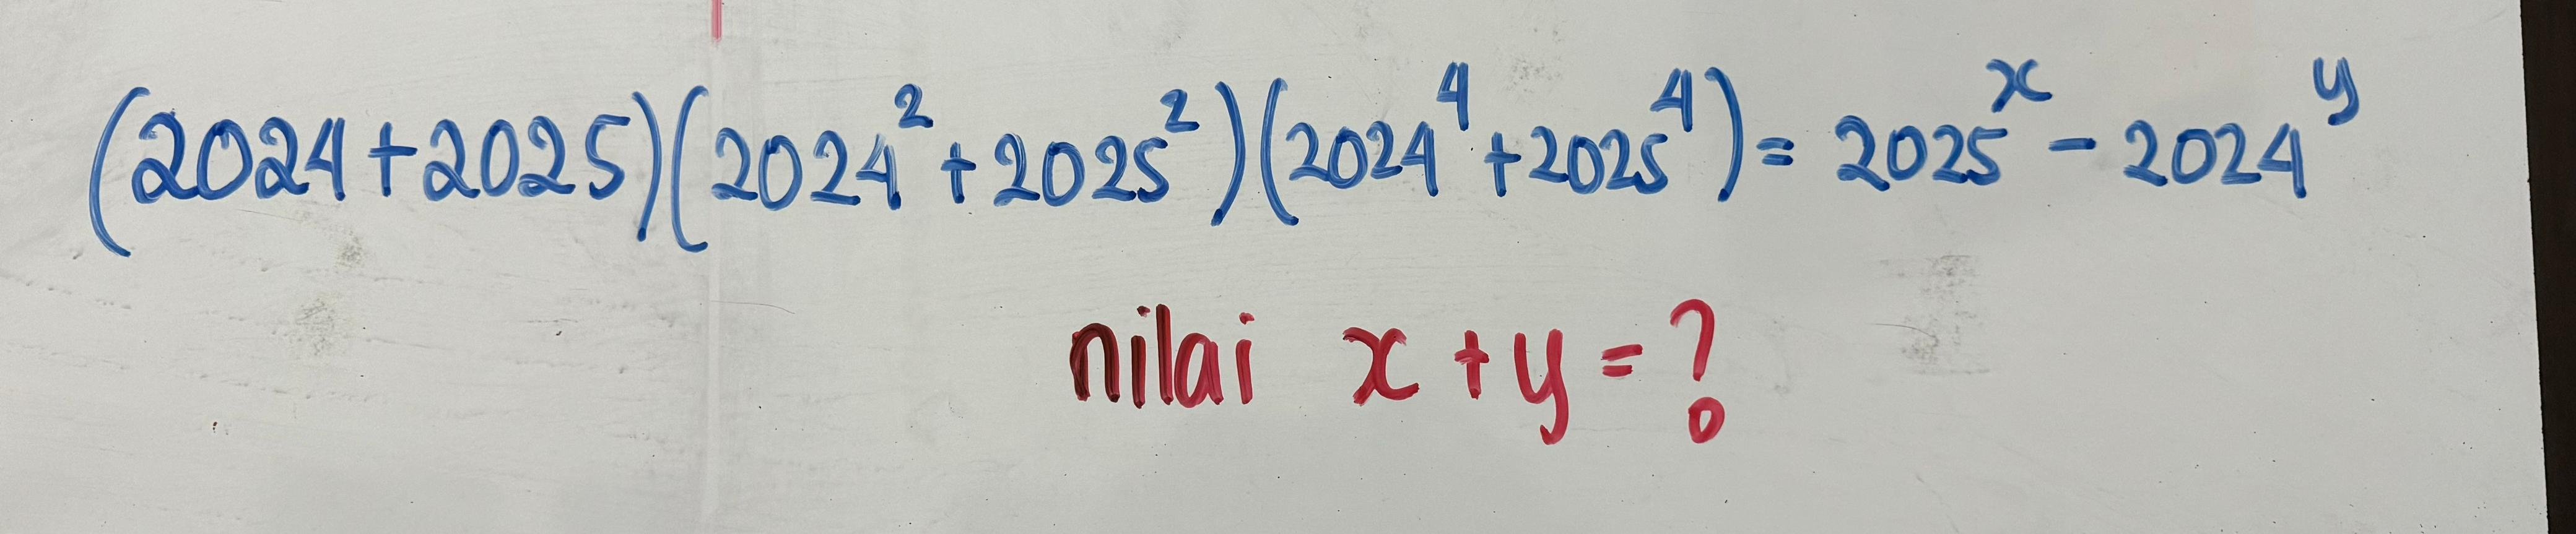 (2024+2025)(2024²+2025²)(2024⁴+2025⁴)=2025ˣ-2024ʸ
nilai x+y=?